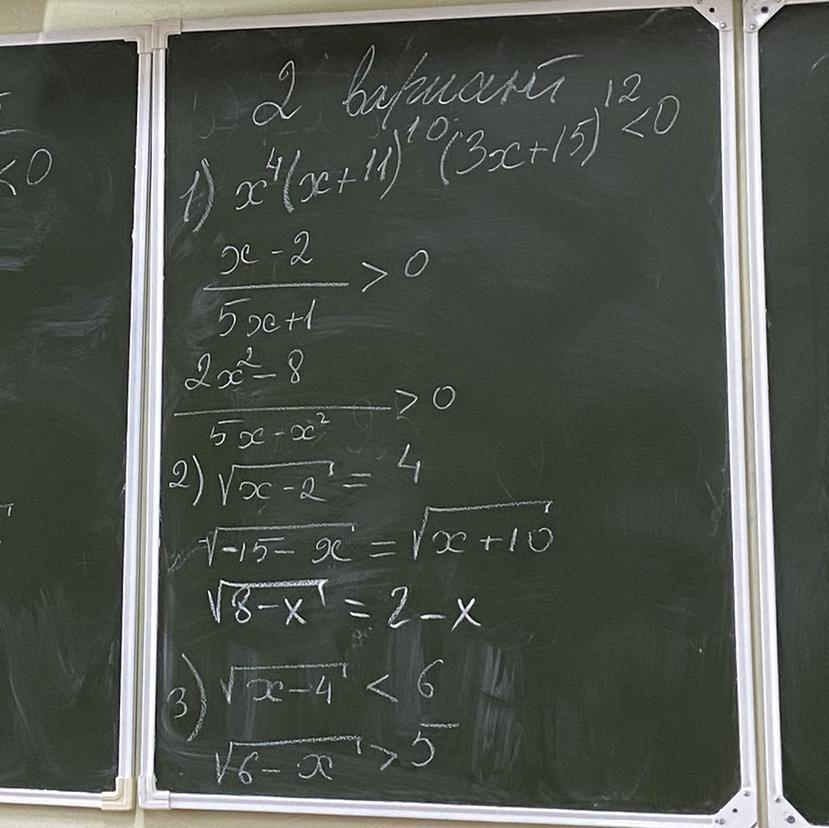 <0
2 вариант
1) x⁴(x+11)¹⁰(3x+15)¹² <0
x-2 / 5x+1 > 0
2x²-8 / 5x-x² > 0
2) √(x-2) = 4
√(-15-x) = √(x+10)
√(8-x) = 2-x
3) √(x-4) < 6
√(6-x) > 5